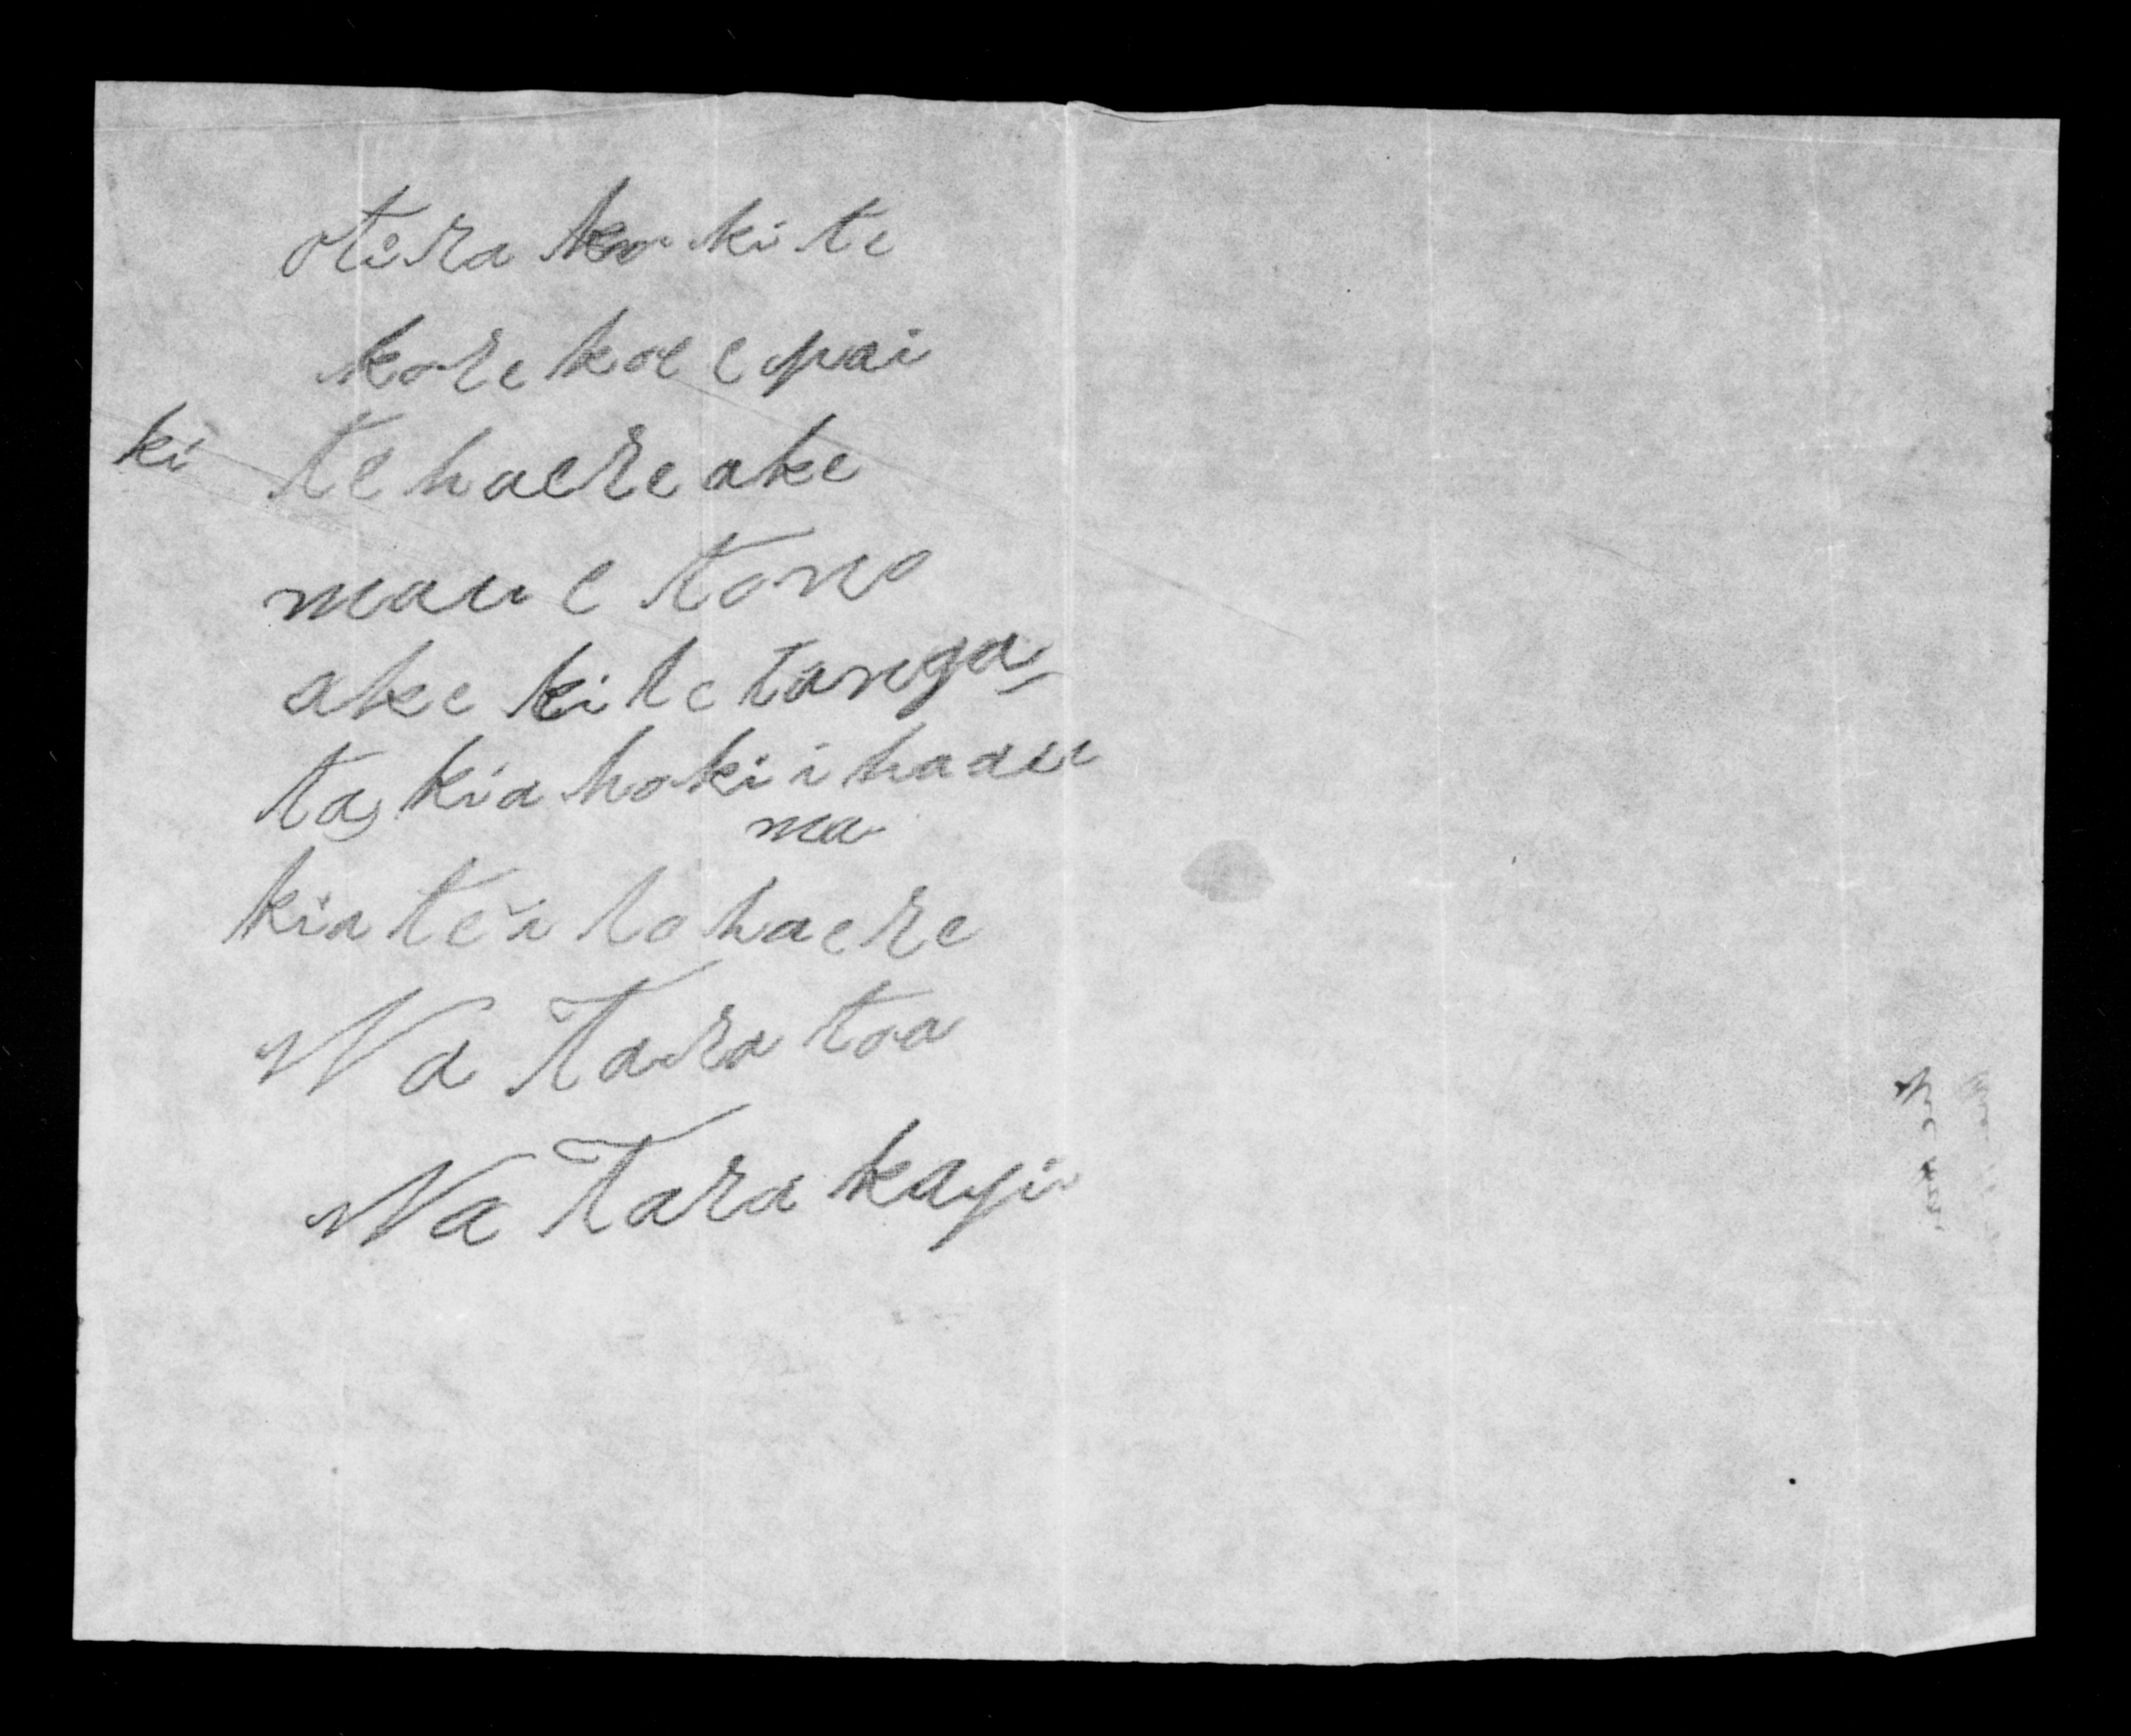 otira ko ki te
kore koe e pai
ki te haere ake
mau e tono
ake ki te tanga
ta, kia hoki i haau
ma
kia tei to haere
Na Tara toa
Na Tara kapi